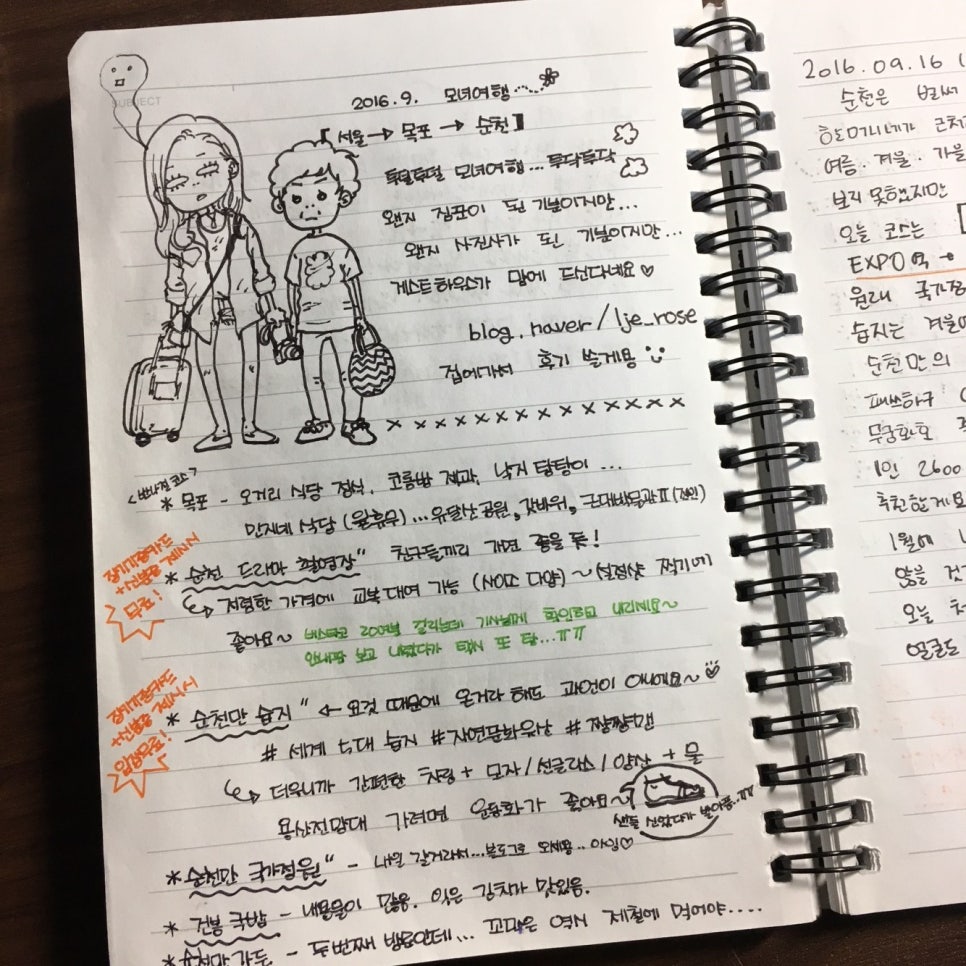 SUBJECT
2016. 9. 모녀여행.....
[서울 → 목포 → 순천]
투덜투덜 모녀여행... 투닥투닥
왠지 짐꾼이 된 기분이지만...
왠지 사진사가 된 기분이지만...
게스트하우스가 맘에 드신다네요 ♡
blog.naver/lje_rose
집에가서 후기 쓸게용
x x x x x x x x x x x x x x
* 목포 - 오거리 식당 정식, 코롬방 제과, 낙지 탕탕이 ...
만지네 식당 (월휴무) ... 유달산 공원, 갓바위, 근대박물관Ⅱ
장기기증카드
+신분증 제시시
무료!
* 순천 드라마 촬영장" 친구들끼리 가면 좋을 듯!
↳ 저렴한 가격에 교복대여 가능 (사이즈 다양) ~ 설정샷 찍기에
좋아요~ 버스타고 200번 걸리는데 기사님께 확인하고 내리세요~
안내판 보고 내렸다가 택시 또 탐...ㅠㅠ
장기기증카드
+신분증 제시시
입장무료!
* 순천만 습지" ← 요것 때문에 온거라 해도 과언이 아니에요~
# 세계 5대 습지 #자연문화유산 # 짱짱맨
↳ 더우니까 간편한 차림 + 모자/선글라스/양산 + 물
용산전망대 가려면 운동화가 좋아요~
샌들 신었다가 발아픔..ㅠㅠ
* 순천만 국가정원" - 내일 갈거라서...블로그로 오세용.. 아잉♡
* 건봉국밥 - 내용물이 많음. 익은 김치가 맛있음.
* 순천만가든 - 두번째 방문인데... 꼬막은 역시 제철에 먹어야....
2016.09.16
순천은 벌써
할머니네가 근처
여름. 겨울. 가을
보지 못했지만
오늘 코스는
EXPO역 →
원래 국가정
습지는 겨울에
순천만의
패쓰하구
무궁화호
1인 2600
추천할게요
1월에
않을
오늘
얼굴도